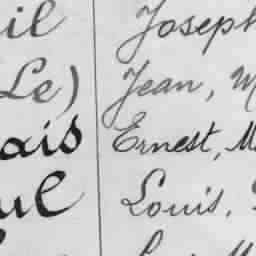 il Joseph
Le) Jean, M
ais Ernest, M
ul Louis,